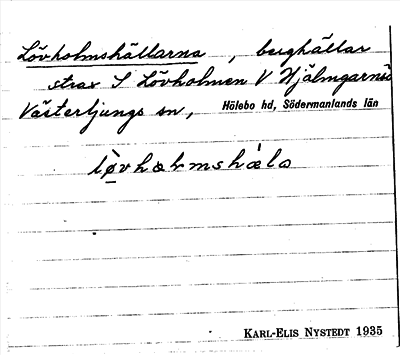 Lövholmshällarna, berghällar
strax S Lövholmen V Hjälmgarnsö
Västerljungs sn, Hölebo hd, Södermanlands län
KARL-ELIS NYSTEDT 1935